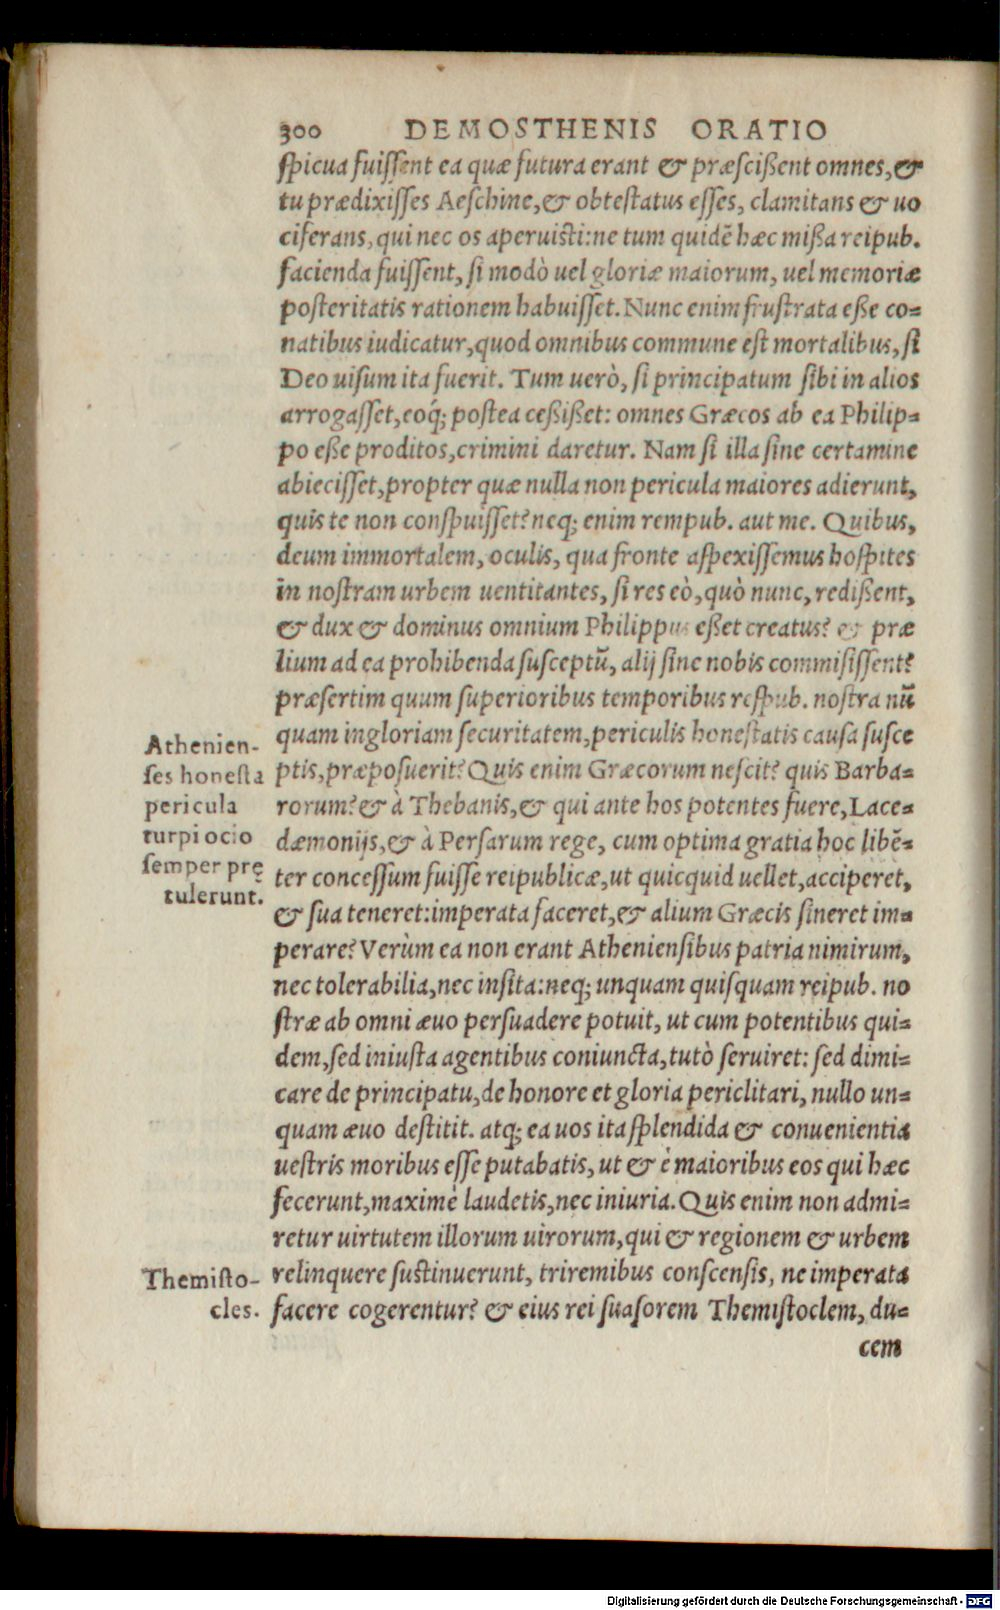 300 DEMOSTHENIS ORATIO
ſpicua fuiſſent ea quæ futura erant & præſcißent omnes, &
tu prædixiſſes Aeſchine, & obteſtatus eſſes, clamitans & uo
ciferans, qui nec os aperuisti: ne tum quidē hæc mißa reipub.
facienda fuiſſent, ſi modò uel gloriæ maiorum, uel memoriæ
poſteritatis rationem habuiſſet. Nunc enim fruſtrata eße co-
natibus iudicatur, quod omnibus commune eſt mortalibus, ſi
Deo uiſum ita fuerit. Tum uerò, ſi principatum ſibi in alios
arrogaſſet, eoq́; poſtea ceßißet: omnes Græcos ab ea Philip-
po eße proditos, crimini daretur. Nam ſi illa ſine certamine
abieciſſet, propter quæ nulla non pericula maiores adierunt,
quis te non conſpuiſſet? neq; enim rempub. aut me. Quibus,
deum immortalem, oculis, qua fronte aſpexiſſemus hoſpites
in noſtram urbem uentitantes, ſi res eò, quò nunc, redißent,
& dux & dominus omnium Philippus eßet creatus? & præ
lium ad ea prohibenda ſusceptū, alij ſine nobis commiſiſſent?
præſertim quum ſuperioribus temporibus reſpub. noſtra nū
quam ingloriam ſecuritatem, periculis honeſtatis cauſa ſuſce
ptis, præpoſuerit? Quis enim Græcorum neſcit? quis Barba-
rorum? & à Thebanis, & qui ante hos potentes fuere, Lace-
dæmonijs, & à Perſarum rege, cum optima gratia hoc libē-
ter conceſſum fuiſſe reipublicæ, ut quicquid uellet, acciperet,
& ſua teneret: imperata faceret, & alium Græcis ſineret im-
perare? Verùm ea non erant Athenienſibus patria nimirum,
nec tolerabilia, nec inſita: neq; unquam quiſquam reipub. no
ſtræ ab omni æuo perſuadere potuit, ut cum potentibus qui-
dem, ſed iniuſta agentibus coniuncta, tutò ſeruiret: ſed dimi-
care de principatu, de honore et gloria periclitari, nullo un-
quam æuo deſtitit. atq; ea uos ita ſplendida & conuenientia
uestris moribus eſſe putabatis, ut & è maioribus eos qui hæc
fecerunt, maximè laudetis, nec iniuria. Quis enim non admi-
retur uirtutem illorum uirorum, qui & regionem & urbem
relinquere ſustinuerunt, triremibus conſcenſis, ne imperata
facere cogerentur? & eius rei ſuaſorem Themiſtoclem, du-
cem
Athenien-
ſes honeſta
pericula
turpi ocio
ſemper prę
tulerunt.
Themiſto-
cles.
Digitalisierung gefördert durch die Deutsche Forschungsgemeinschaft - DFG